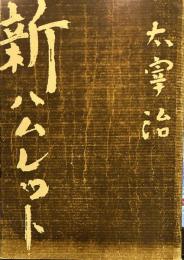 太宰治
新ハムレット